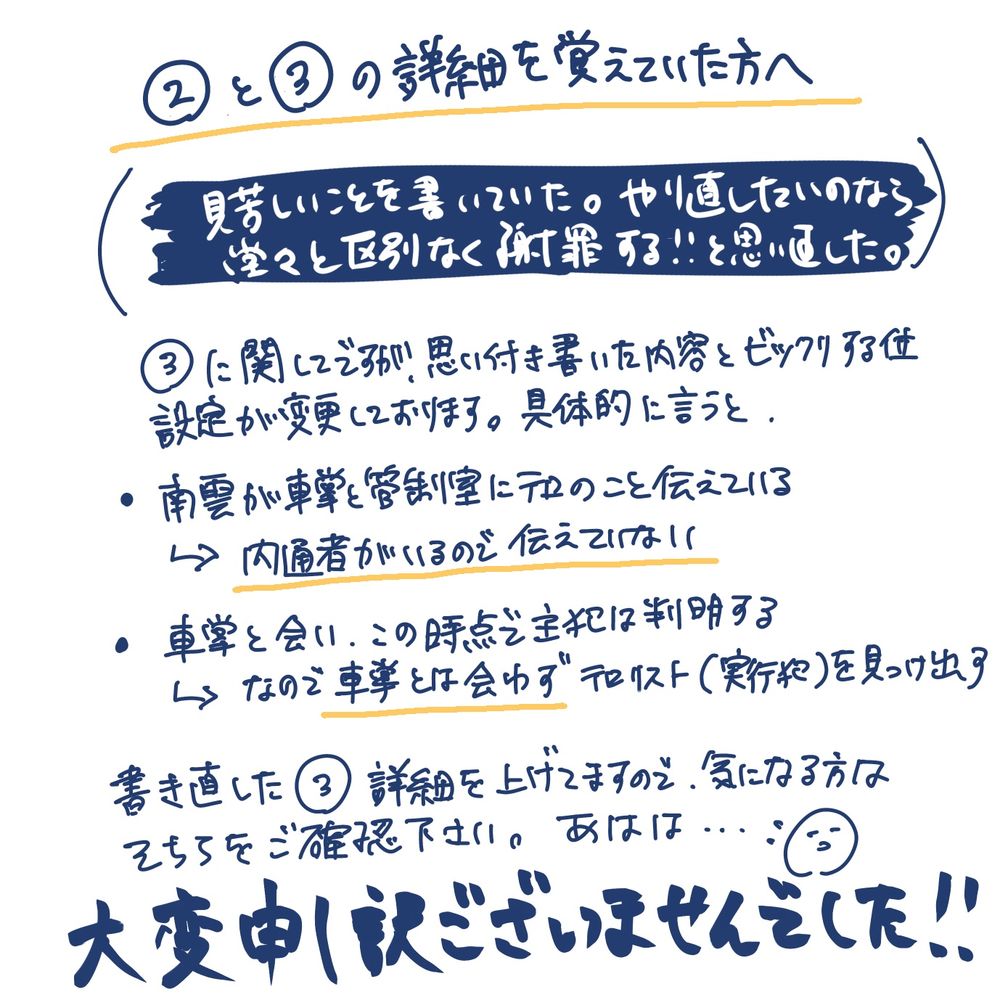 ②と③の詳細を覚えていた方へ
見苦しいことを書いていた。やり直したいのなら
堂々と区別なく謝罪する!!と思い直した。
③に関してですが、思い付き書いた内容とビックリする位
設定が変更しております。具体的に言うと、
・南雲が車掌と管制室にテロのこと伝えている
↳内通者がいるので伝えていない
・車掌と会い、この時点で主犯は判明する
↳なので車掌とは会わずテロリスト(実行犯)を見つけ出す
書き直した③詳細を上げてますので、気になる方は
そちらをご確認下さい。あはは…
大変申し訳ございませんでした!!